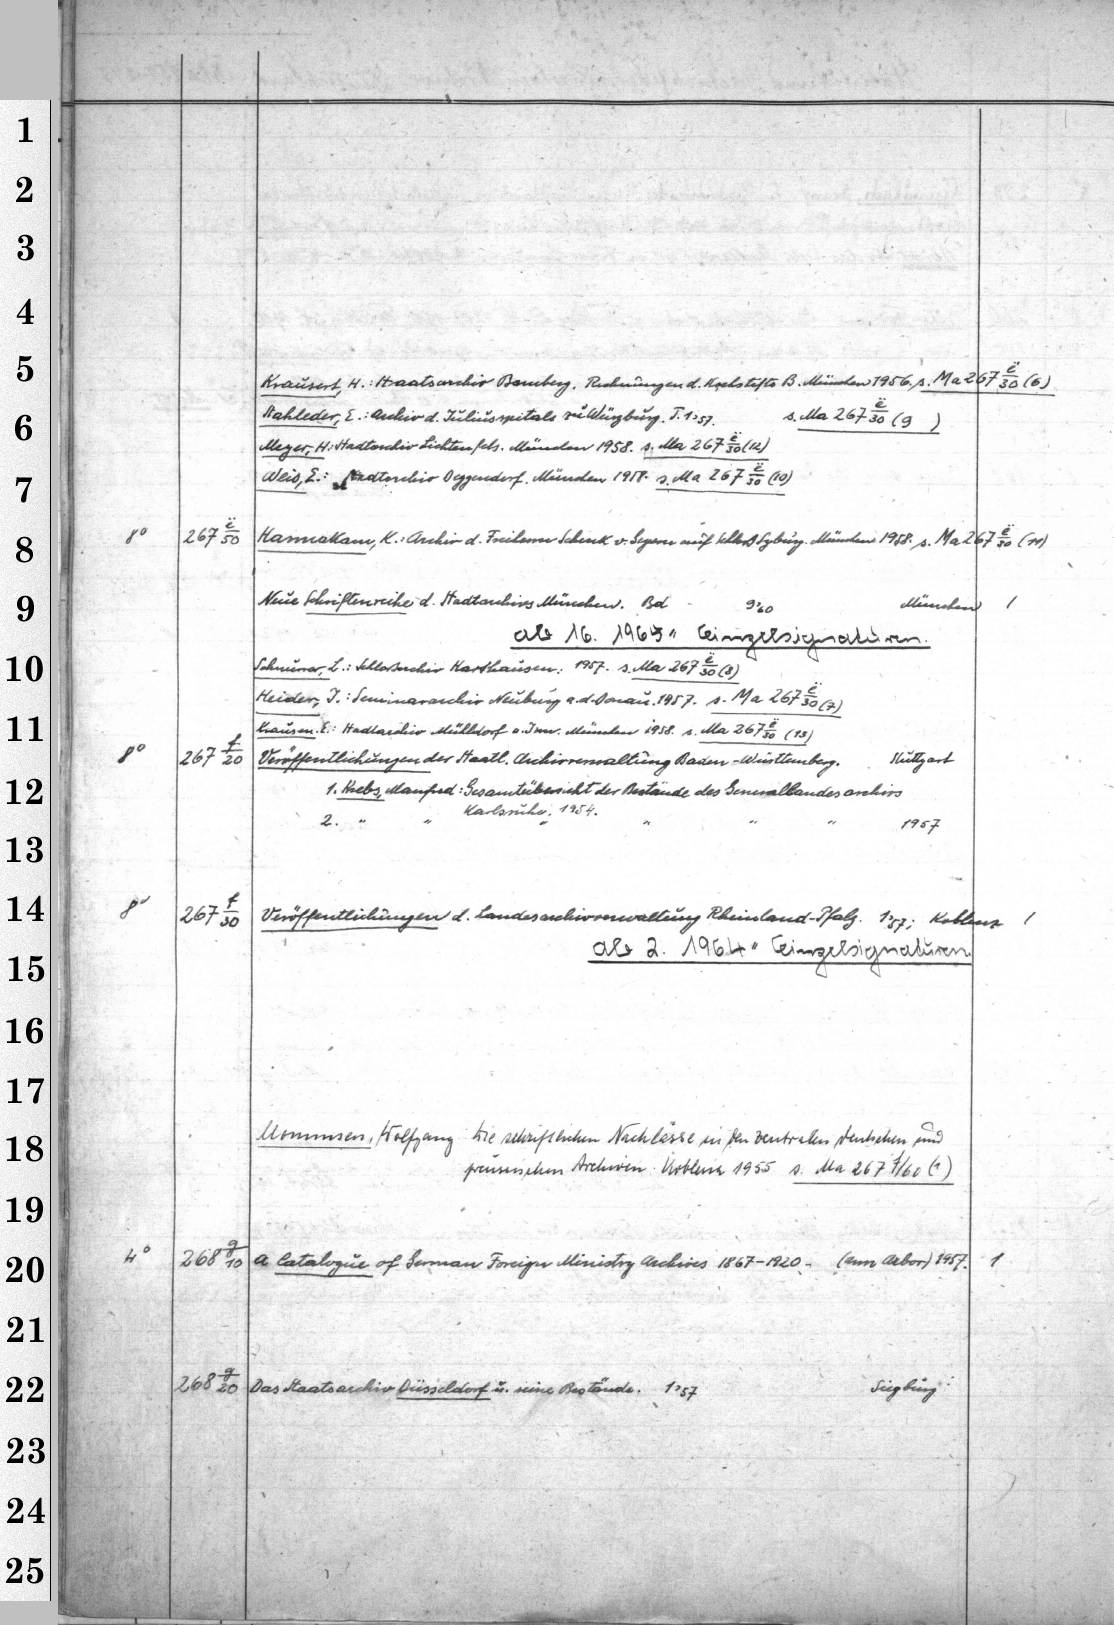 1
2
3
4
5
Krausert, H.: Staatsarchiv Bamberg. Rechnungen d. Hochstifts B. München 1956. s. Ma 267 ë/30 (6)
6
Stahleder, E.: Archiv d. Juliusspitals zu Würzburg. T. 1>57. s. Ma 267 ë/30 (9 )
Meyer, H: Stadtarchiv Lichtenfels. München 1958. s. Ma 267 ë/30 (12)
7
Weis, E.: Stadtarchiv Deggendorf. München 1958. s. Ma 267 ë/30 (10)
8
8° 267 ë/50 Hannakam, K.: Archiv d. Freiherrn Schenk v. Geyern auf Schloß Syburg. München 1958. s. Ma 267 ë/30 (11)
9
Neue Schriftenreihe d. Stadtarchivs München. Bd 9>60 München 1
ab 16. 1965" Einzelsignaturen.
10
Schnurrer, L.: Schloßarchiv Harthausen. 1957. s. Ma 267 ë/30 (8)
Heider, J.: Seminararchiv Neuburg a. d. Donau. 1957. s. Ma 267 ë/30 (7)
11
Krausen, E.: Stadtarchiv Mühldorf a. Inn. München 1958. s. Ma 267 ë/30 (13)
8° 267 f/20 Veröffentlichungen der Staatl. Archivverwaltung Baden-Württemberg. Stuttgart
12
1. Krebs, Manfred: Gesamtübersicht der Bestände des Generallandesarchivs
Karlsruhe. 1954.
2. " " " " " " 1957
13
14
8° 267 f/30 Veröffentlichungen d. Landesarchivverwaltung Rheinland-Pfalz. 1>57; Koblenz 1
ab 2. 1964" Einzelsignaturen.
15
16
17
18
Mommsen, Wolfgang Die schriftlichen Nachlässe in den zentralen deutschen und
preussischen Archiven. Koblenz 1955 s. Ma 267 f/60 (1)
19
20
4° 268 g/10 A Catalogue of German Foreign Ministry Archives 1867-1920. (Ann Arbor) 1957. 1
21
22
268 g/20 Das Staatsarchiv Düsseldorf u. seine Bestände. 1>57 Siegburg
23
24
25